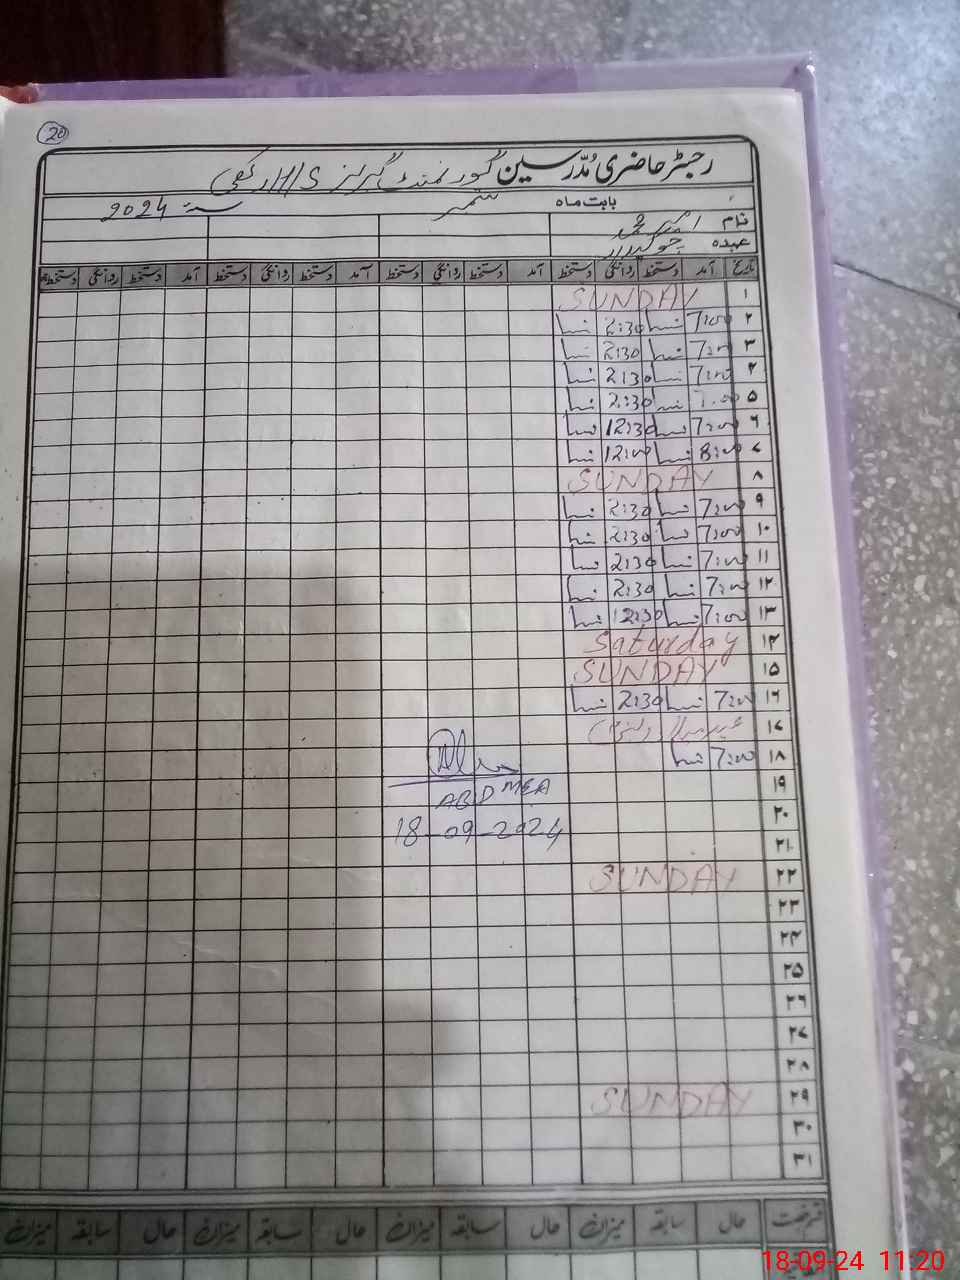 20
رجسٹر حاضری مُدّرسین گورنمنٹ گرلز H/S رکھی
بابت ماہ ستمبر سنہ 2024
نام
عہدہ چوکیدار
تاریخ آمد دستخط روانگی دستخط آمد دستخط روانگی دستخط آمد دستخط روانگی دستخط آمد دستخط روانگی دستخط
۱ SUNDAY
۲ 7:00 2:30
۳ 7:00 2:30
۴ 7:00 2:30
۵ 7:00 2:30
۶ 7:00 12:30
۷ 8:00 12:00
۸ SUNDAY
۹ 7:00 2:30
۱۰ 7:00 2:30
۱۱ 7:00 2:30
۱۲ 7:00 2:30
۱۳ 7:00 12:30
۱۴ Saturday
۱۵ SUNDAY
۱۶ 7:00 2:30
۱۷
۱۸ 7:00
۱۹ ABD MEA
۲۰ 18-09-2024
۲۱
۲۲ SUNDAY
۲۳
۲۴
۲۵
۲۶
۲۷
۲۸
۲۹ SUNDAY
۳۰
۳۱
رخصت حال سابقہ میزان حال سابقہ میزان حال سابقہ میزان حال سابقہ میزان
18-09-24 11:20